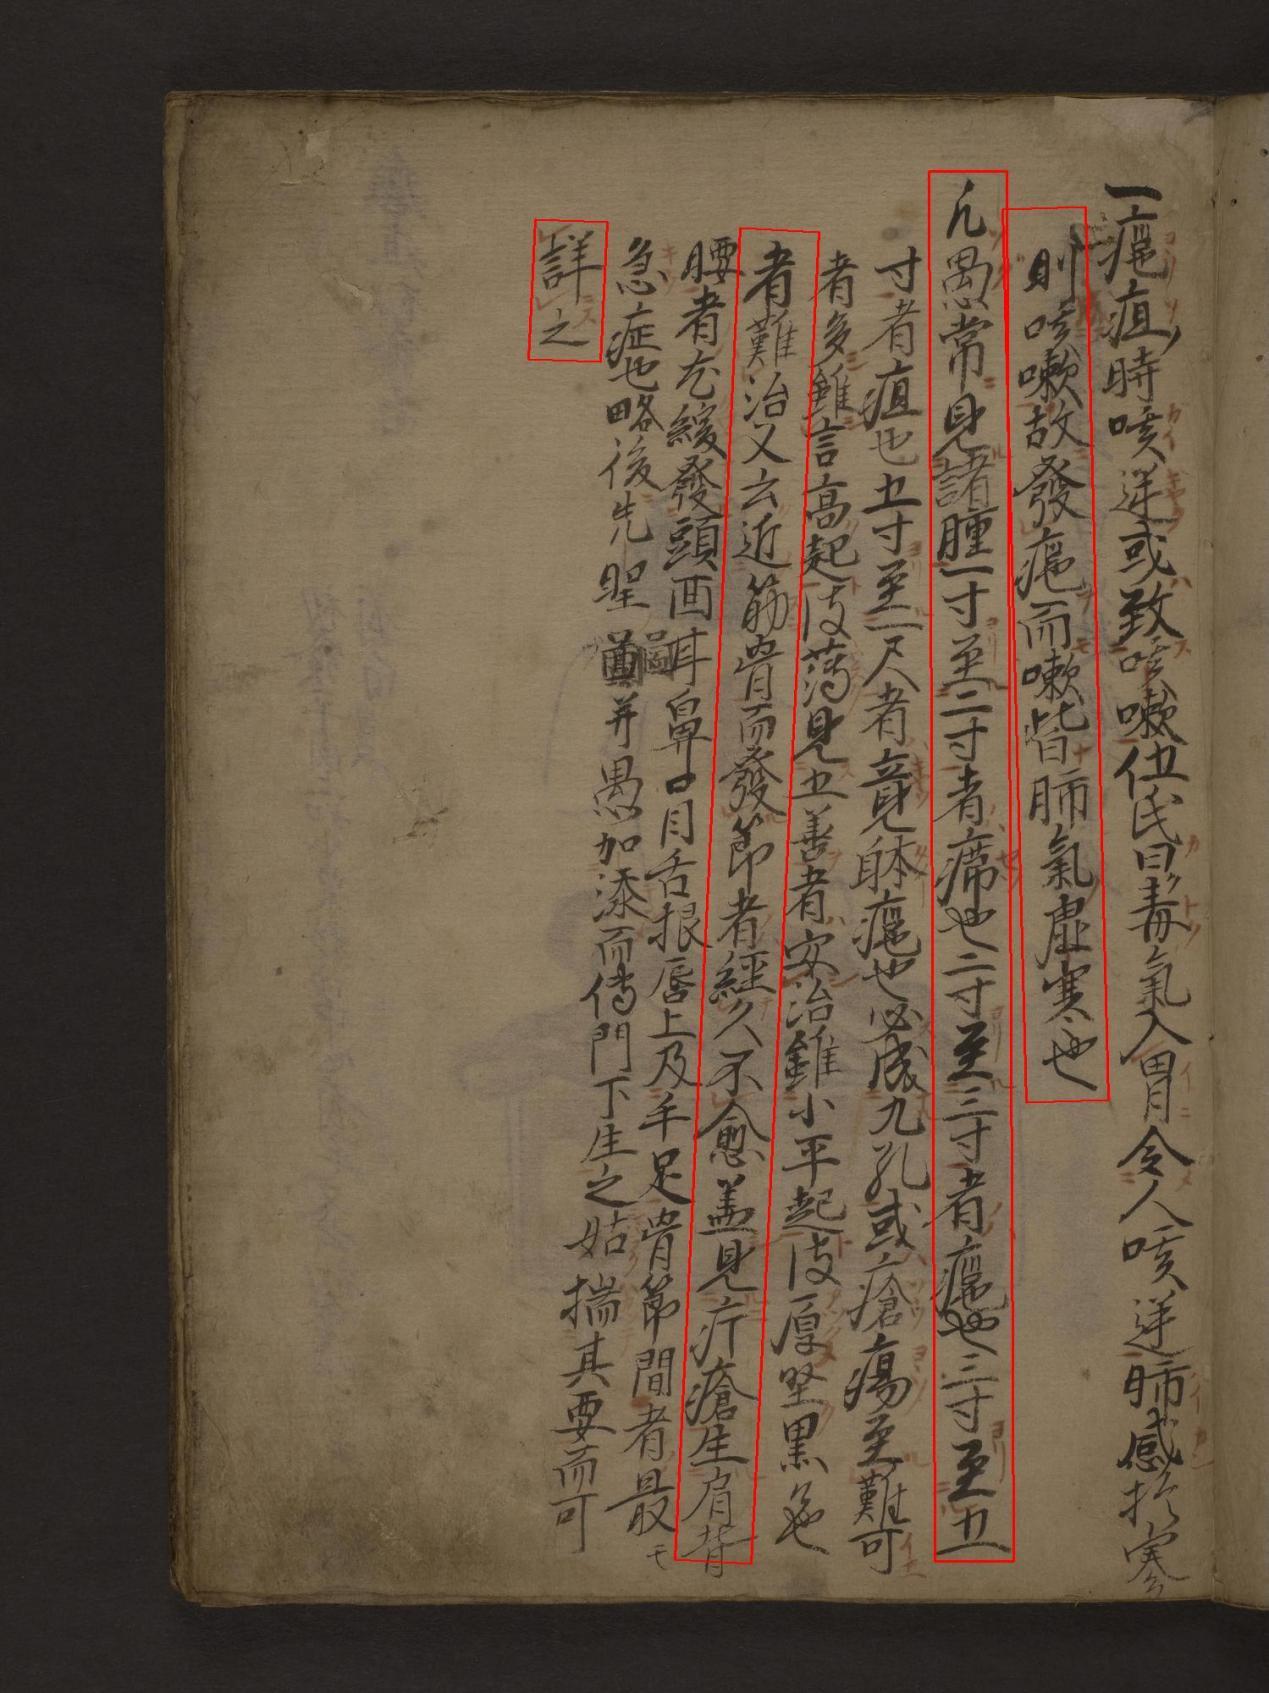 一癰疽時咳逆或致咳嗽伍氏曰毒氣入胃令人咳逆肺感於寒
則咳嗽故發癰而嗽皆肺氣虛寒也
凡愚常見諸腫一寸至二寸者癤也二寸至三寸者癰也三寸至五
寸者疽也五寸至一尺者竟体癰也必成九孔或瘡瘍至難可
者多雖言高起皮薄見五善者安治雖小平起皮厚堅黒色
者難治又云近筋骨而發節者經久不愈盖見疔瘡生肩背
腰者冘緩發頭面耳鼻口目舌根唇上及手足骨節間者最
急症也略後先聖并愚加添而傳門下生之姑揣其要而可
詳之